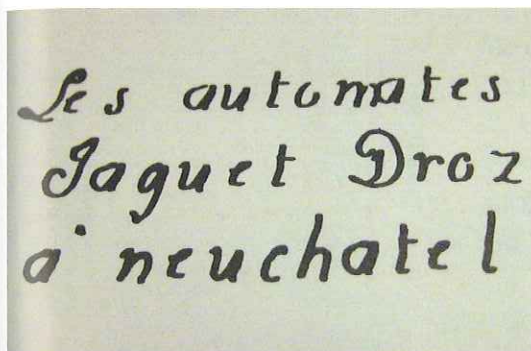 Les automates
Jaguet Droz
à neuchatel